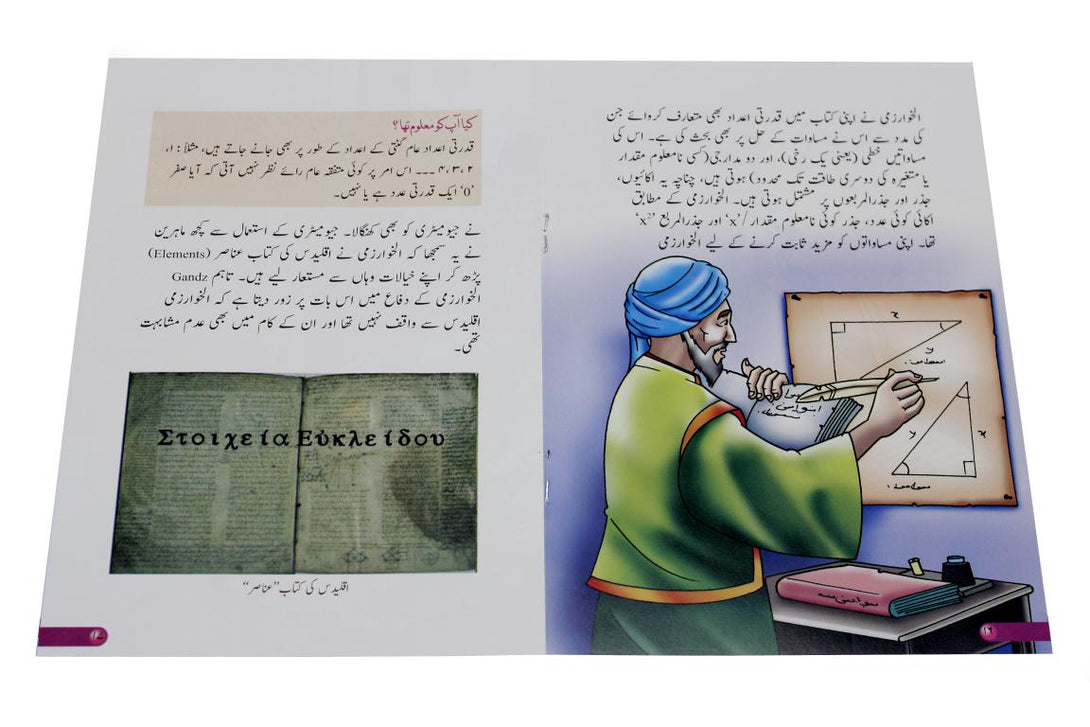 الخوارزمی نے اپنی کتاب میں قدرتی اعداد بھی متعارف کروائے جن
کی مدد سے اس نے مساوات کے حل پر بھی بحث کی ہے۔ اس کی
مساواتیں خطی (یعنی یک رخی)، اور دو مدارجی (کسی نامعلوم مقدار
یا متغیرہ کی دوسری طاقت تک محدود) ہوتی ہیں، چنانچہ یہ اکائیوں،
جذر اور جذرالمربعوں پر مشتمل ہوتی ہیں۔ الخوارزمی کے مطابق
اکائی کوئی عدد، جذر کوئی نامعلوم مقدار /'x' اور جذرالمربع 'x²'
تھا۔ اپنی مساواتوں کو مزید ثابت کرنے کے لیے الخوارزمی
x
y
y
x
۱۶
کیا آپ کو معلوم تھا؟
قدرتی اعداد عام گنتی کے اعداد کے طور پر بھی جانے جاتے ہیں، مثلاً: ۱،
۲، ۳، ۴ ۔۔۔ اس امر پر کوئی متفقہ عام رائے نظر نہیں آتی کہ آیا صفر
'0' ایک قدرتی عدد ہے یا نہیں۔
نے جیومیٹری کو بھی کھنگالا۔ جیومیٹری کے استعمال سے کچھ ماہرین
نے یہ سمجھا کہ الخوارزمی نے اقلیدس کی کتاب عناصر (Elements)
پڑھ کر اپنے خیالات وہاں سے مستعار لیے ہیں۔ تاہم Gandz
الخوارزمی کے دفاع میں اس بات پر زور دیتا ہے کہ الخوارزمی
اقلیدس سے واقف نہیں تھا اور ان کے کام میں بھی عدم مشابہت
تھی۔
Στοιχεία Εὐκλείδου
اقلیدس کی کتاب "عناصر"
۱۷